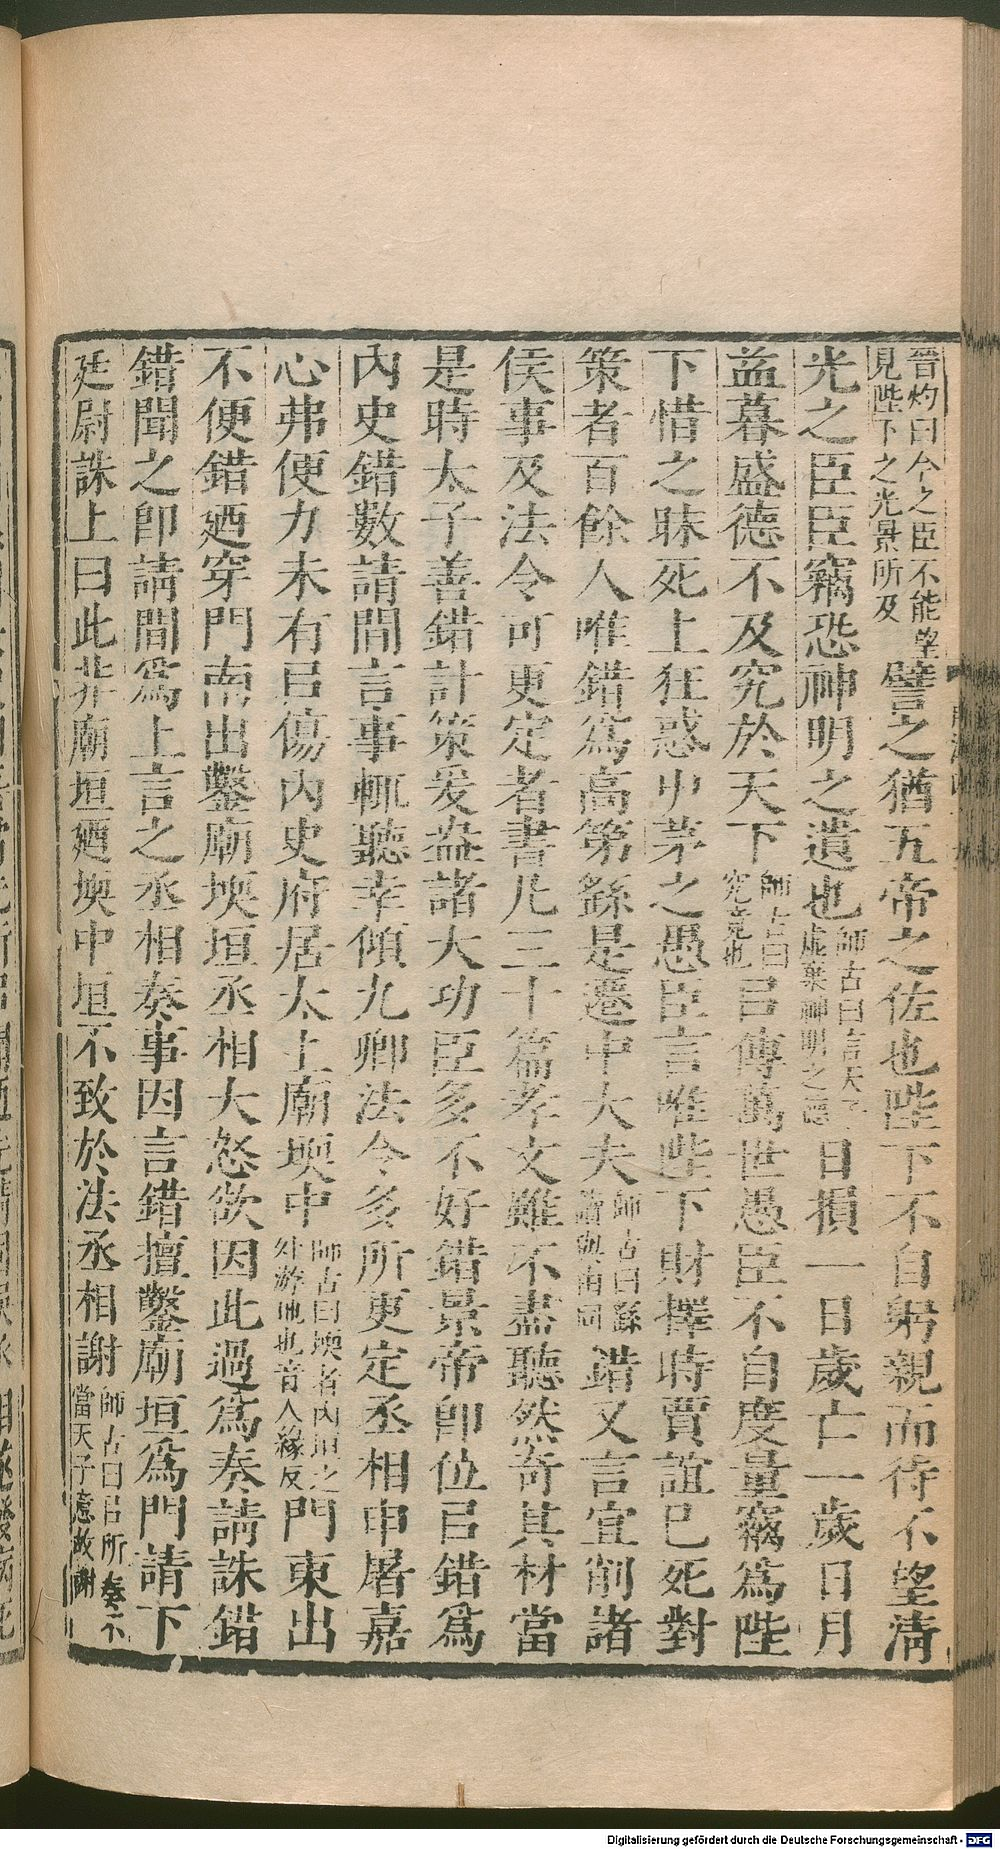 晉灼曰今之臣不能望見陛下之光景所及譬之猶五帝之佐也陛下不自躬親而待不望淸
光之臣臣竊恐神明之遺也師古曰言天子虛棄神明之德日損一日歲亡一歲日月
益暮盛德不及究於天下師古曰究竟也㠯傳萬世愚臣不自度量竊爲陛
下惜之昧死上狂惑屮茅之愚臣言唯陛下財擇時賈誼已死對
策者百餘人唯錯爲高第繇是遷中大夫師古曰繇讀與由同錯又言宜削諸
侯事及法令可更定者書凡三十篇孝文雖不盡聽然奇其材當
是時太子善錯計策爰盎諸大功臣多不好錯景帝卽位㠯錯爲
內史錯數請閒言事輒聽幸傾九卿法令多所更定丞相申屠嘉
心弗便力未有㠯傷內史府居太上廟堧中師古曰堧者內垣之外游地也音人緣反門東出
不便錯廼穿門南出鑿廟堧垣丞相大怒欲因此過爲奏請誅錯
錯聞之卽請閒爲上言之丞相奏事因言錯擅鑿廟垣爲門請下
廷尉誅上曰此非廟垣廼堧中垣不致於法丞相謝師古曰㠯所奏不當天子意故謝
Digitalisierung gefördert durch die Deutsche Forschungsgemeinschaft - DFG